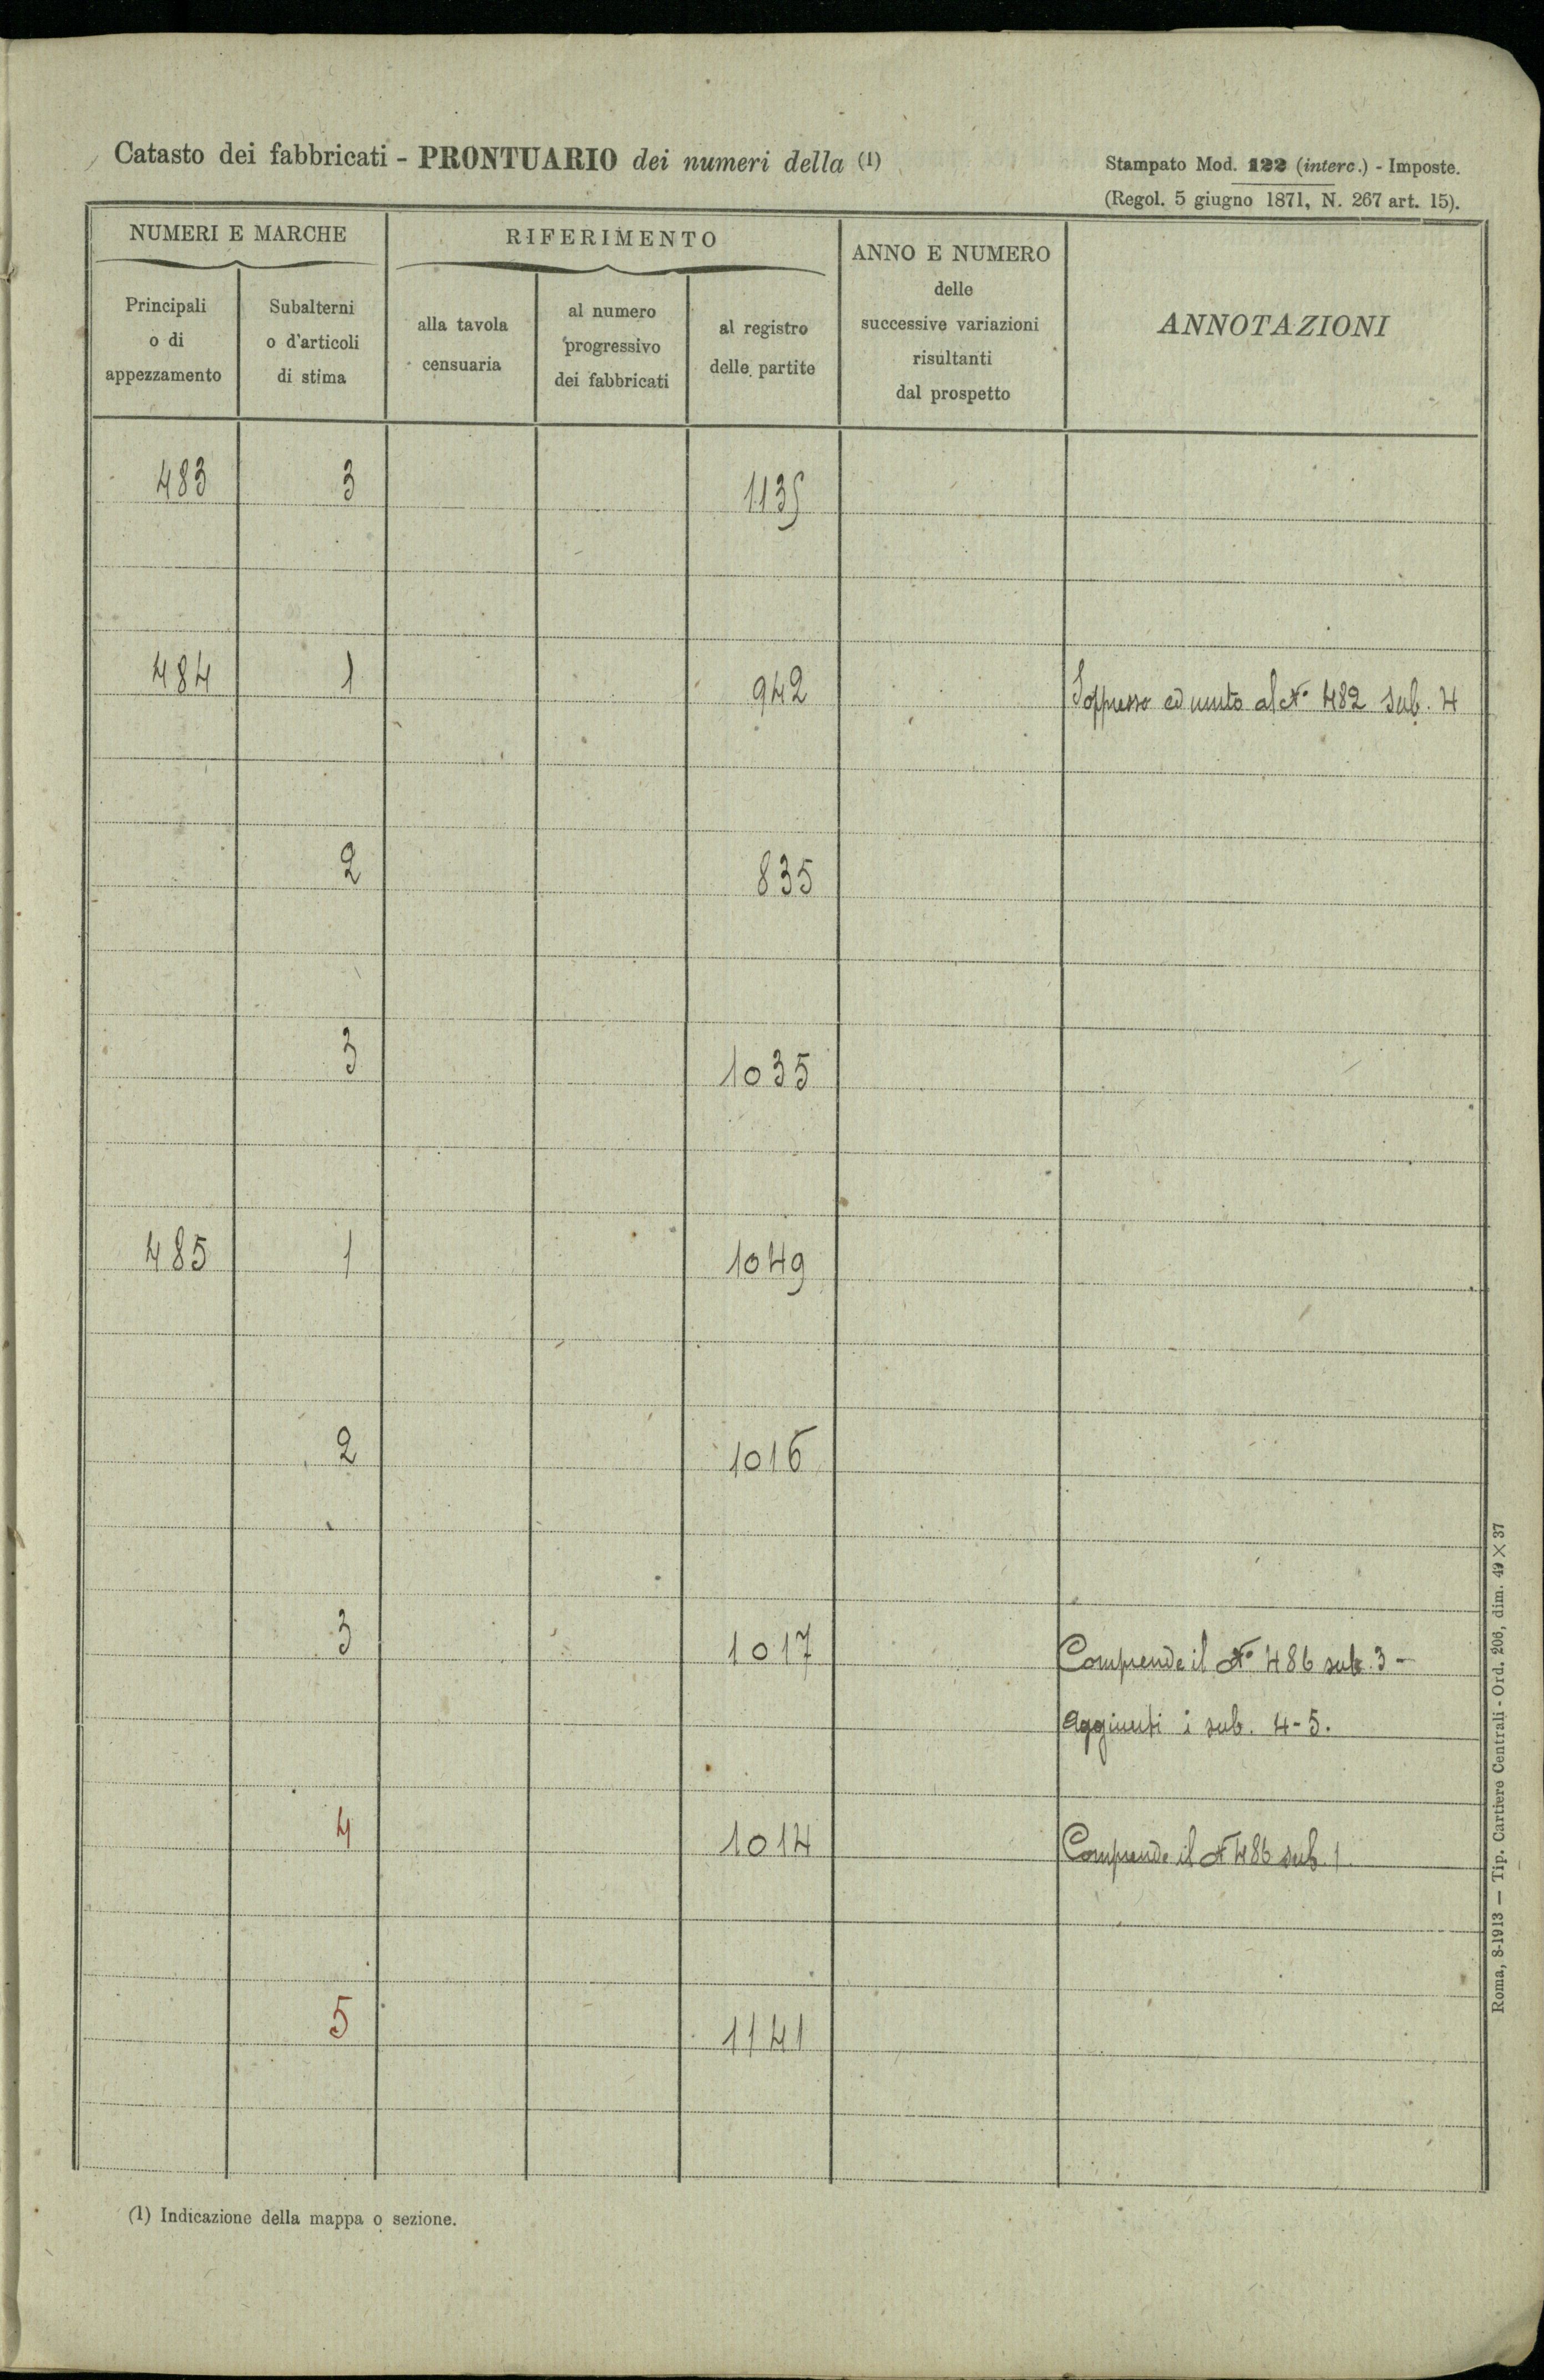 Catasto dei fabbricati - PRONTUARIO dei numeri della (1)
Stampato Mod. 122 (interc.) - Imposte.
(Regol. 5 giugno 1871, N. 267 art. 15).
NUMERI E MARCHE
RIFERIMENTO
ANNO E NUMERO
delle
successive variazioni
risultanti
dal prospetto
ANNOTAZIONI
Principali
o di
appezzamento
Subalterni
o d'articoli
di stima
alla tavola
censuaria
al numero
progressivo
dei fabbricati
al registro
delle partite
483 3 1135
484 1 942 Soppresso ed unito al N° 482 sub. 4
2 835
3 1035
485 1 1049
2 1016
3 1017 Comprende il N° 486 sub. 3 -
Aggiunti i sub. 4-5.
4 1014 Comprende il N 486 sub. 1
5 1141
(1) Indicazione della mappa o sezione.
Roma, 8-1913 — Tip. Cartiere Centrali - Ord. 206, dim. 49 × 37